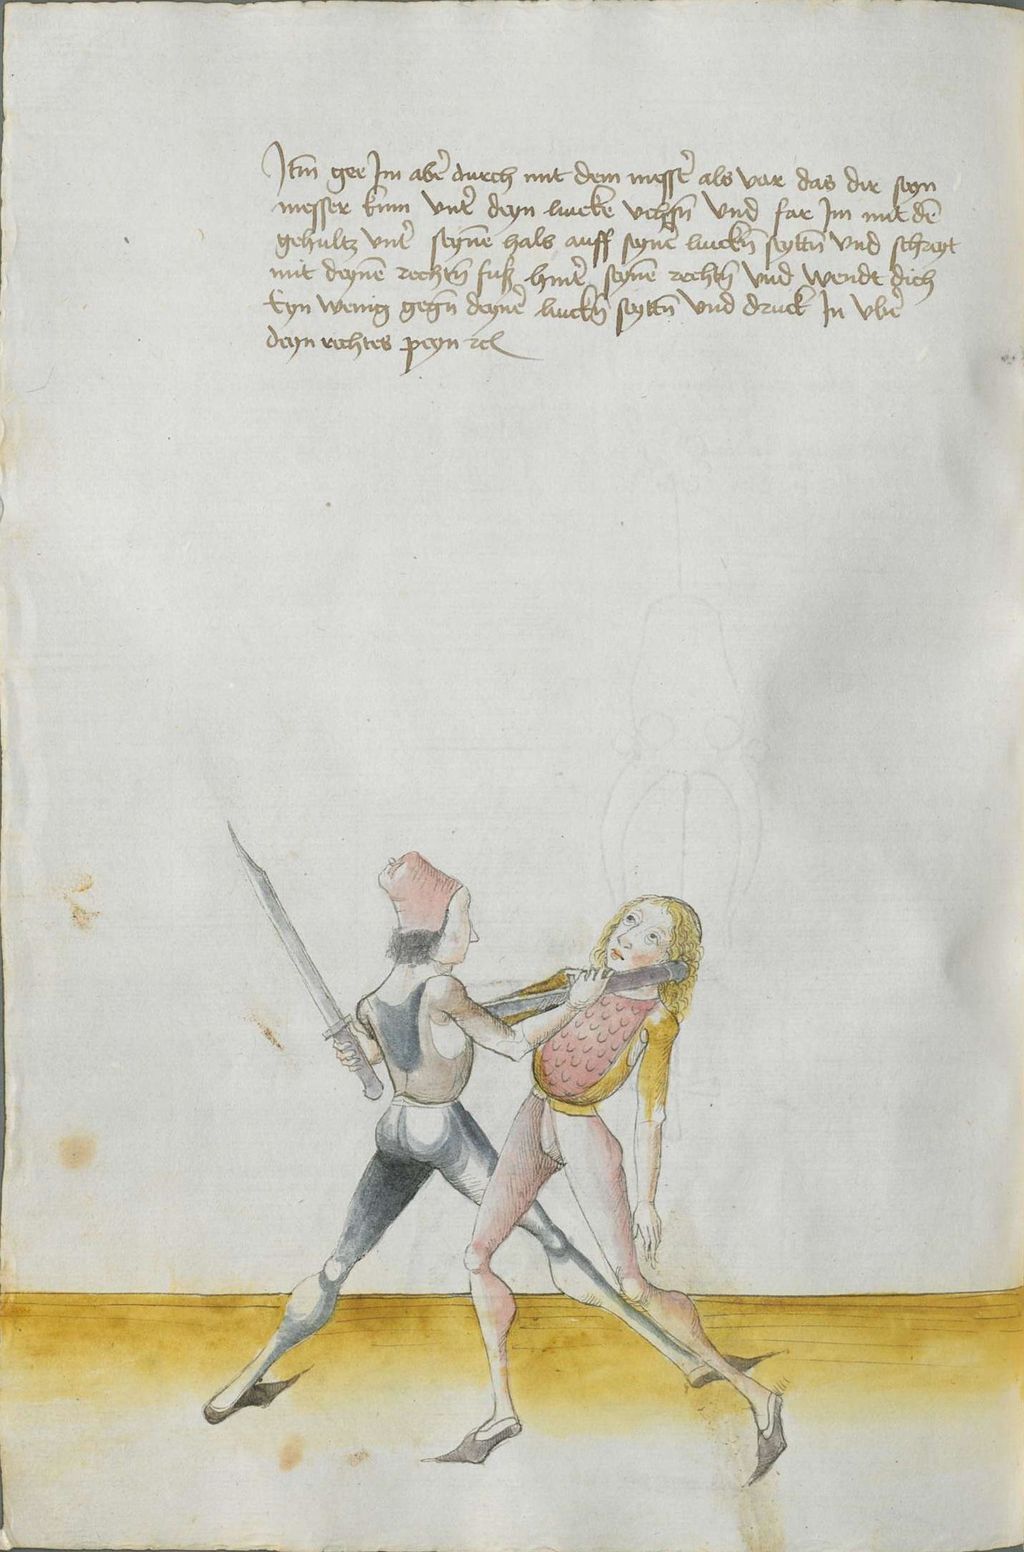 Itm̄ gee Im aber durch mit dem messer als vor das dir seyn
messer kum vnter deyn lincke vchsn̄ vnd far Im mit dē
gehultz vnter seynē hals auff seyner linckn̄ seyttn̄ vnd schreyt
mit deynē rechtn̄ fuß hinter seynē rechtn̄ vnd wendt dich
Eyn wenig gegn̄ deyner linckn̄ seyttn̄ vnd druck In vber
deyn rechtes peyn